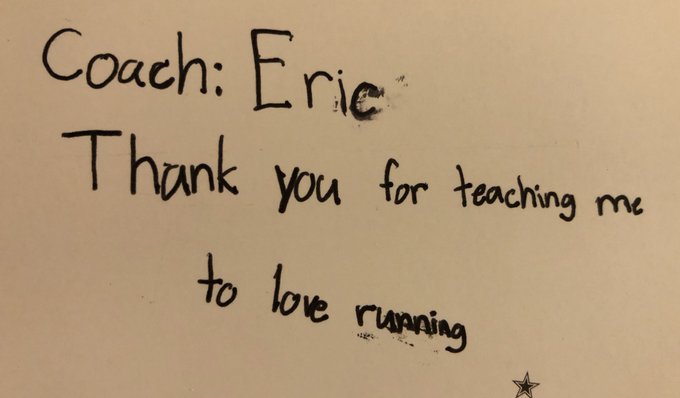 Coach: Eric
Thank you for teaching me
to love running